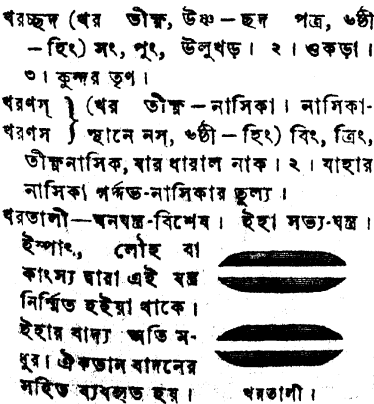 খরচ্ছদ (খর তীক্ষ্ণ, উষ্ণ—ছদ পত্র, ৬ষ্ঠী
—হিং) সং, পুং, উলুখড়। ২। ওকড়া।
৩। কুন্দর তৃণ।
খরণস্ } (খর তীক্ষ্ণ—নাসিকা। নাসিকা-
খরণস } স্থানে নস্, ৬ষ্ঠী—হিং) বিং, ত্রিং,
তীক্ষ্ণনাসিক, যার ধারাল নাক। ২। যাহার
নাসিকা গর্দ্দভ-নাসিকার তুল্য।
খরতালী—ঘনযন্ত্র-বিশেষ। ইহা সভ্য-যন্ত্র।
ইস্পাৎ, লৌহ বা
কাংস্য দ্বারা এই যন্ত্র
নির্ম্মিত হইয়া থাকে।
ইহার বাদ্য অতি ম-
ধুর। ঐকতান বাদনের
সহিত ব্যবহৃত হয়।
খরতালী।